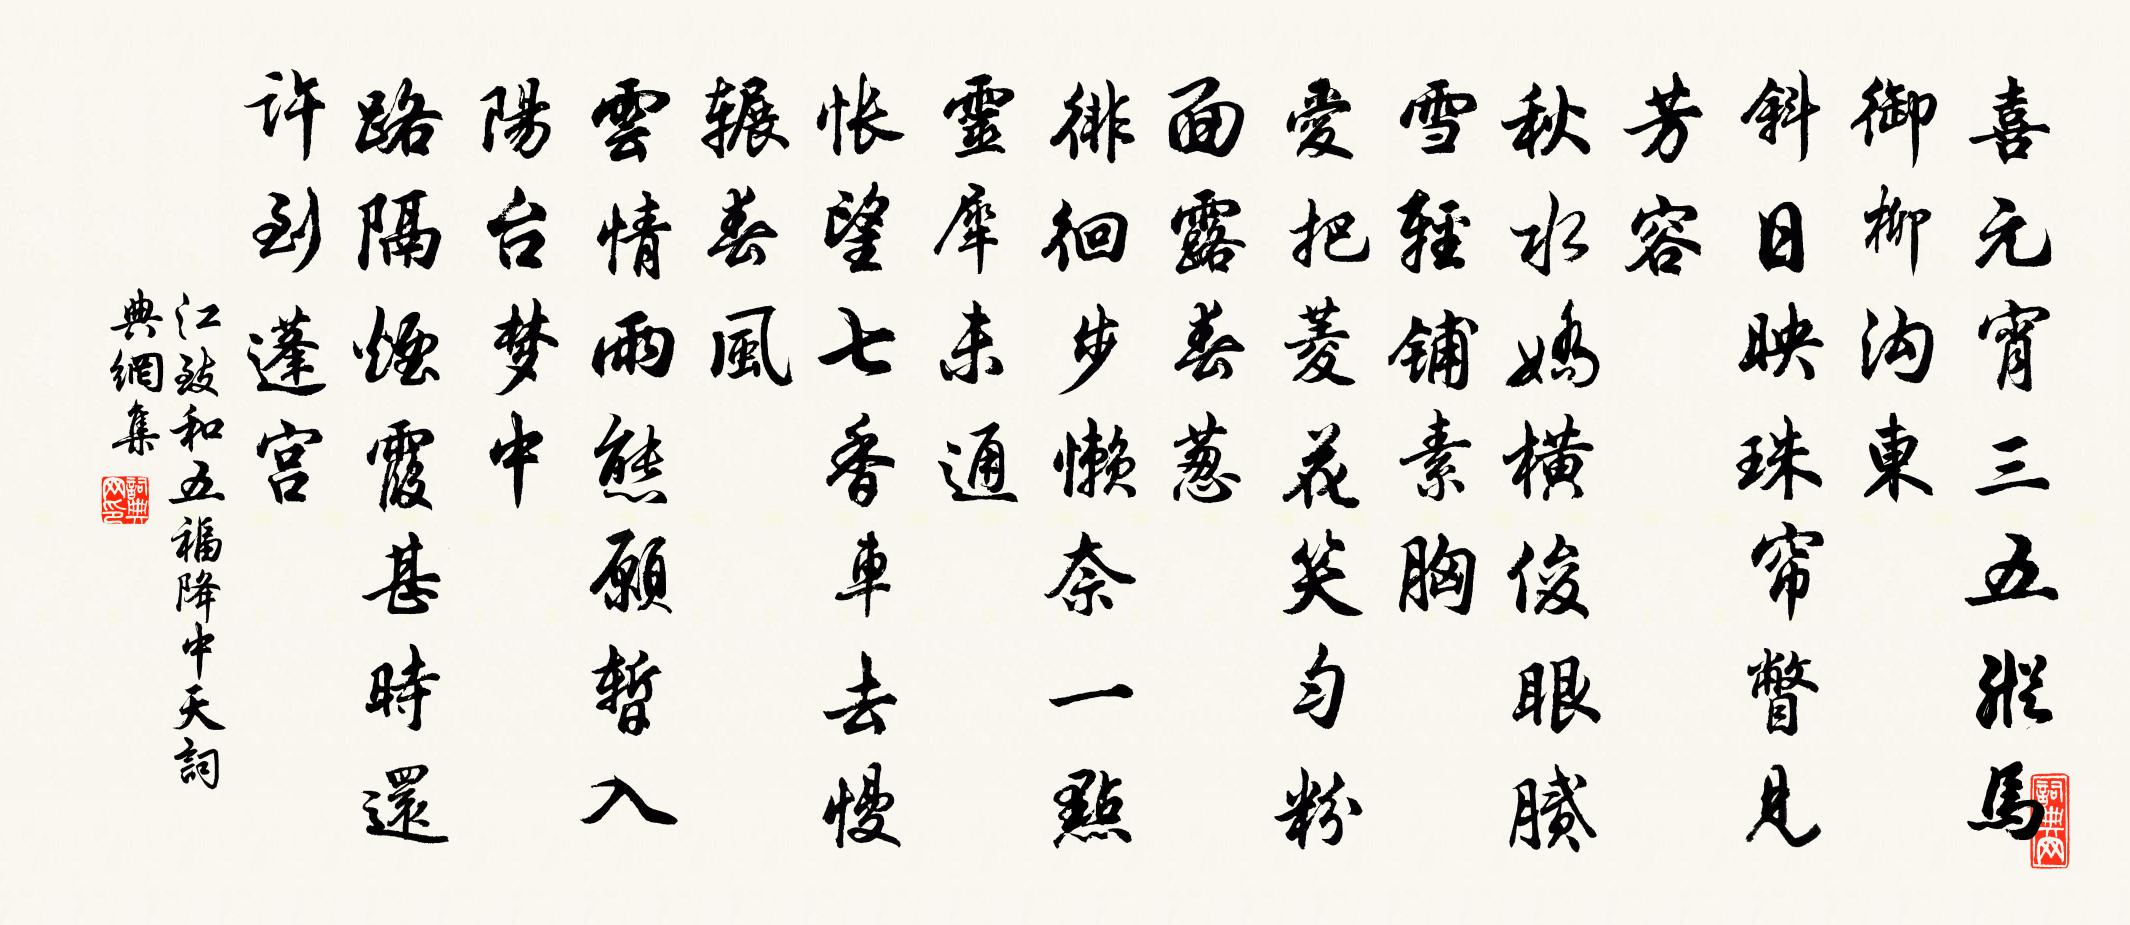 喜元宵三五縱馬
御柳沟東
斜日映珠帘瞥見
芳容
秋水嬌橫俊眼膩
雪輕鋪素胸
愛把菱花笑匀粉
面露春葱
徘徊步懒奈一點
靈犀未通
怅望七香車去慢
辗春風
雲情雨態願暫入
陽台梦中
路隔煙霞甚時還
許到蓬宫
江致和五福降中天詞
典網集
詞典网
詞典网印